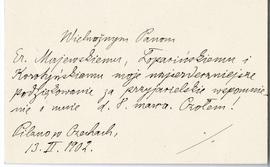 Wielmożnym Panom
Er. Majewskiemu, Łopacińskiemu i
Korotyńskiemu moje najserdeczniejsze
podziękowanie za przyjacielskie wspomnie-
nie o mnie d. 8. marca. Czołem!
w Czechach,
13. II. 1902.